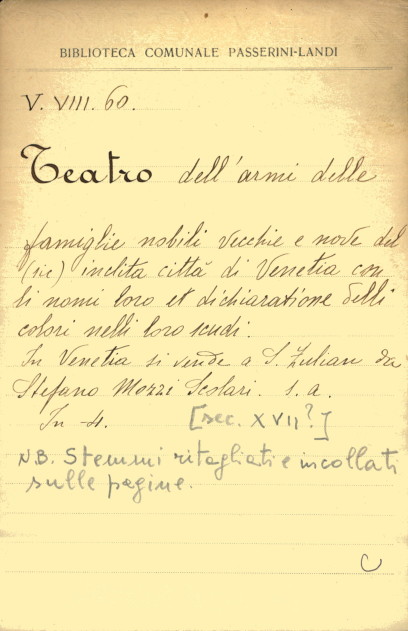 BIBLIOTECA COMUNALE PASSERINI-LANDI
V. VIII. 60.
Teatro dell'armi delle
famiglie nobili vecchie e nove del
(sic) inclita città di Venetia con
li nomi loro et dichiaratione delli
colori nelli loro scudi.
In Venetia si vende a S. Zulian da
Stefano Mozzi Scolari. s. a.
In 4. [sec. XVII?]
N.B. Stemmi ritagliati e incollati
sulle pagine.
C